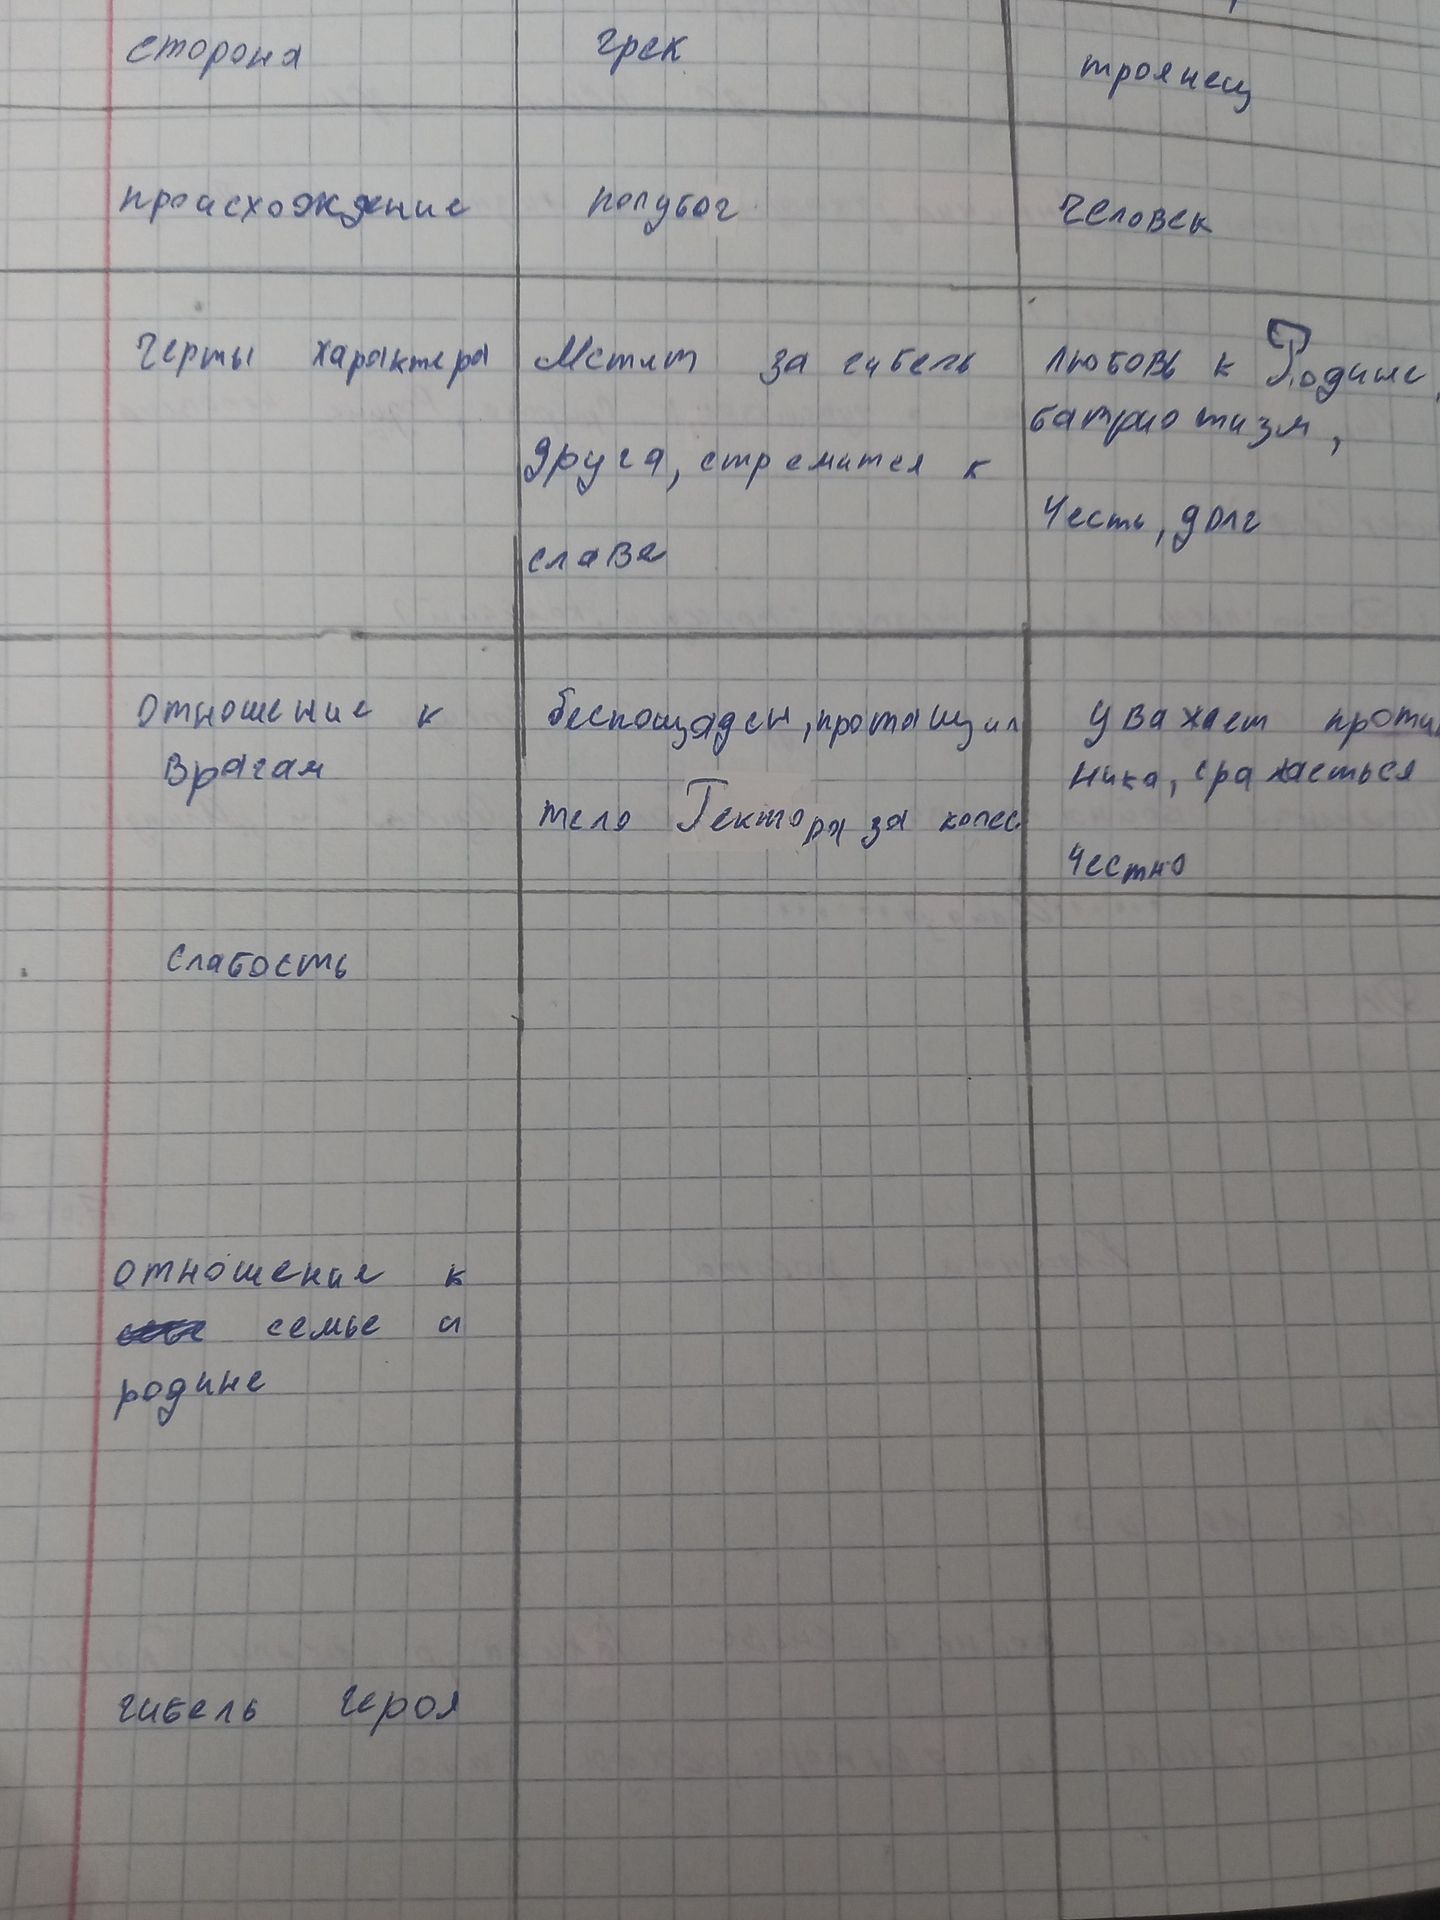 сторона грек троянец
происхождение полубог человек
черты характера Мстит за гибель любовь к Родине,
батриотизм,
друга, стремится к
честь, долг
славе
отношение к беспощаден, протащил уважает против
врагам ника, сражаеться
тело Гектора за колес
честно
слабость
отношение к
семье и
родине
гибель героя